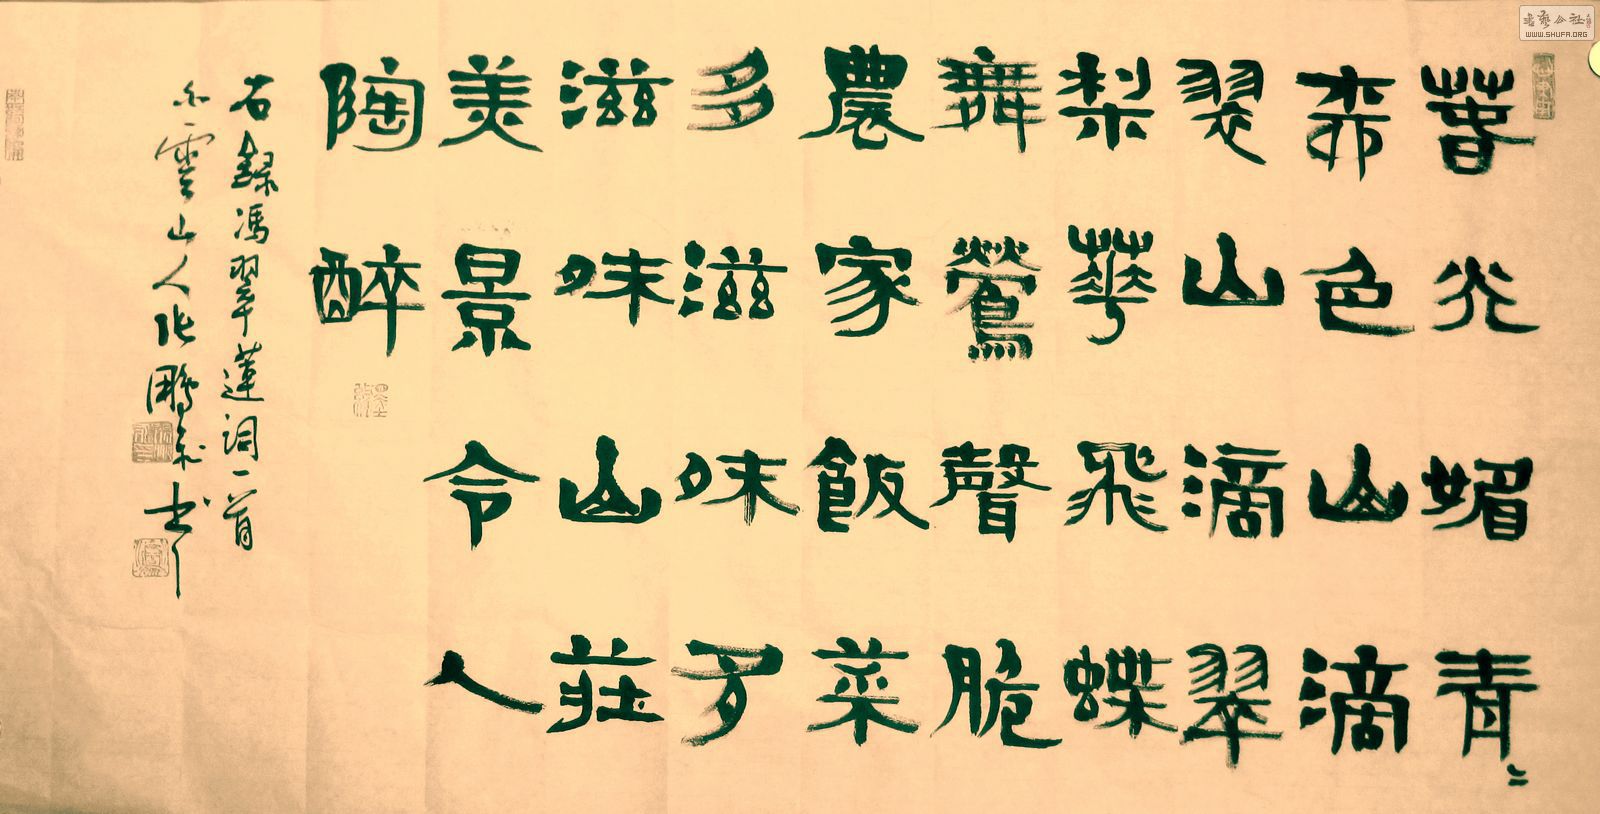 春光媚青〻
柳色山滴
翠山滴翠
梨華飛蝶
舞鶯聲脆
農家飯菜
多滋味多
滋味山莊
美景令人
陶醉
右錄馮翠蓮詞一首
雲山人張鵬書
書藝公社
WWW.SHUFA.ORG